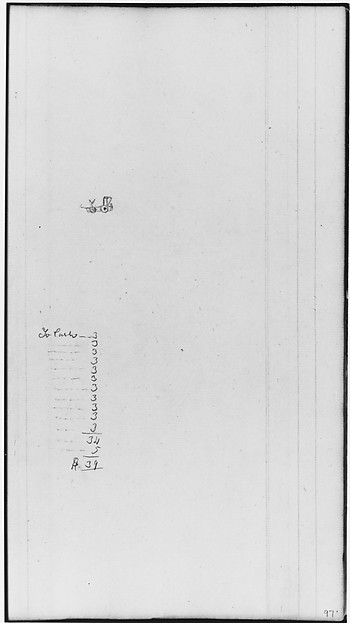 To Cash — 3
3
3
3
3
3
3
3
3
3
3
34
5
39
97